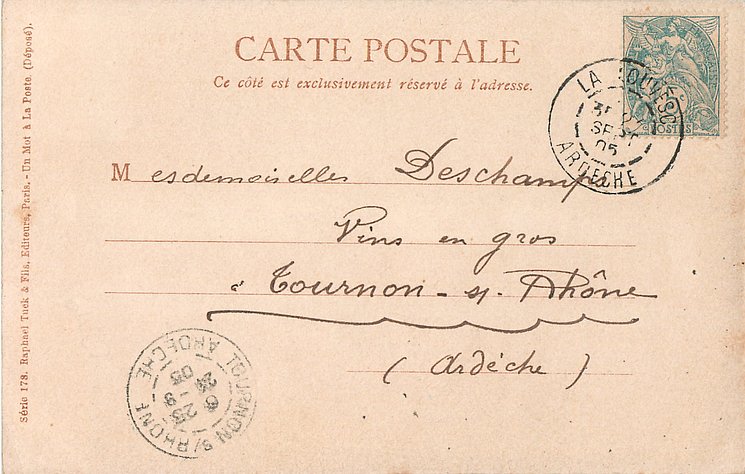 CARTE POSTALE
Ce côté est exclusivement réservé à l'adresse.
LA LOUVESC
SEPT
05
ARDÈCHE
POSTES
Mesdemoiselles Deschamps
Vins en gros
à Tournon-s/-Rhône
(Ardèche)
TOURNON S/RHONE
ARDECHE
25 - 9
05
Série 173. Raphael Tuck & Fils, Editeurs, Paris. - Un Mot à La Poste (Déposé).